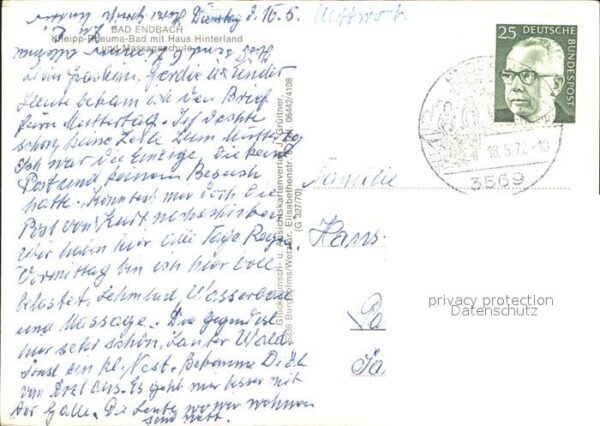 Dienstag d. 16.5.
Mittwoch
BAD ENDBACH
Kneipp-Rheuma-Bad mit Haus Hinterland
und Massageschule
Gerdi u. Kinder
Heute bekam ich den Brief
zum Muttertag. Ich dachte
schon keine Zeile zum Muttertag
Ich war die Einzige, die keine
Post und keinen Besuch
hatte. Könntest mir doch die
Post von Kurt nachschicken
Wir haben hier alle Tage Regen
Vormittag bin ich hier voll
belastet. Lehmbad, Wasserbad
und Massage. Die Gegend ist
hier sehr schön. Lauter Wald
Sonst ein kl. Nest. Bekomme Diät
von Arzt aus. Es geht mir besser mit
der Galle. Die Leute wo wir wohnen
sind nett.
Glückwunsch- u. Ansichtskartenverlag J. Grüttner,
Elisabethenstr. 06442/4108
(G 327/70)
25 DEUTSCHE
BUNDESPOST
18.5.72-10
3569
Familie
Hans
privacy protection
Datenschutz